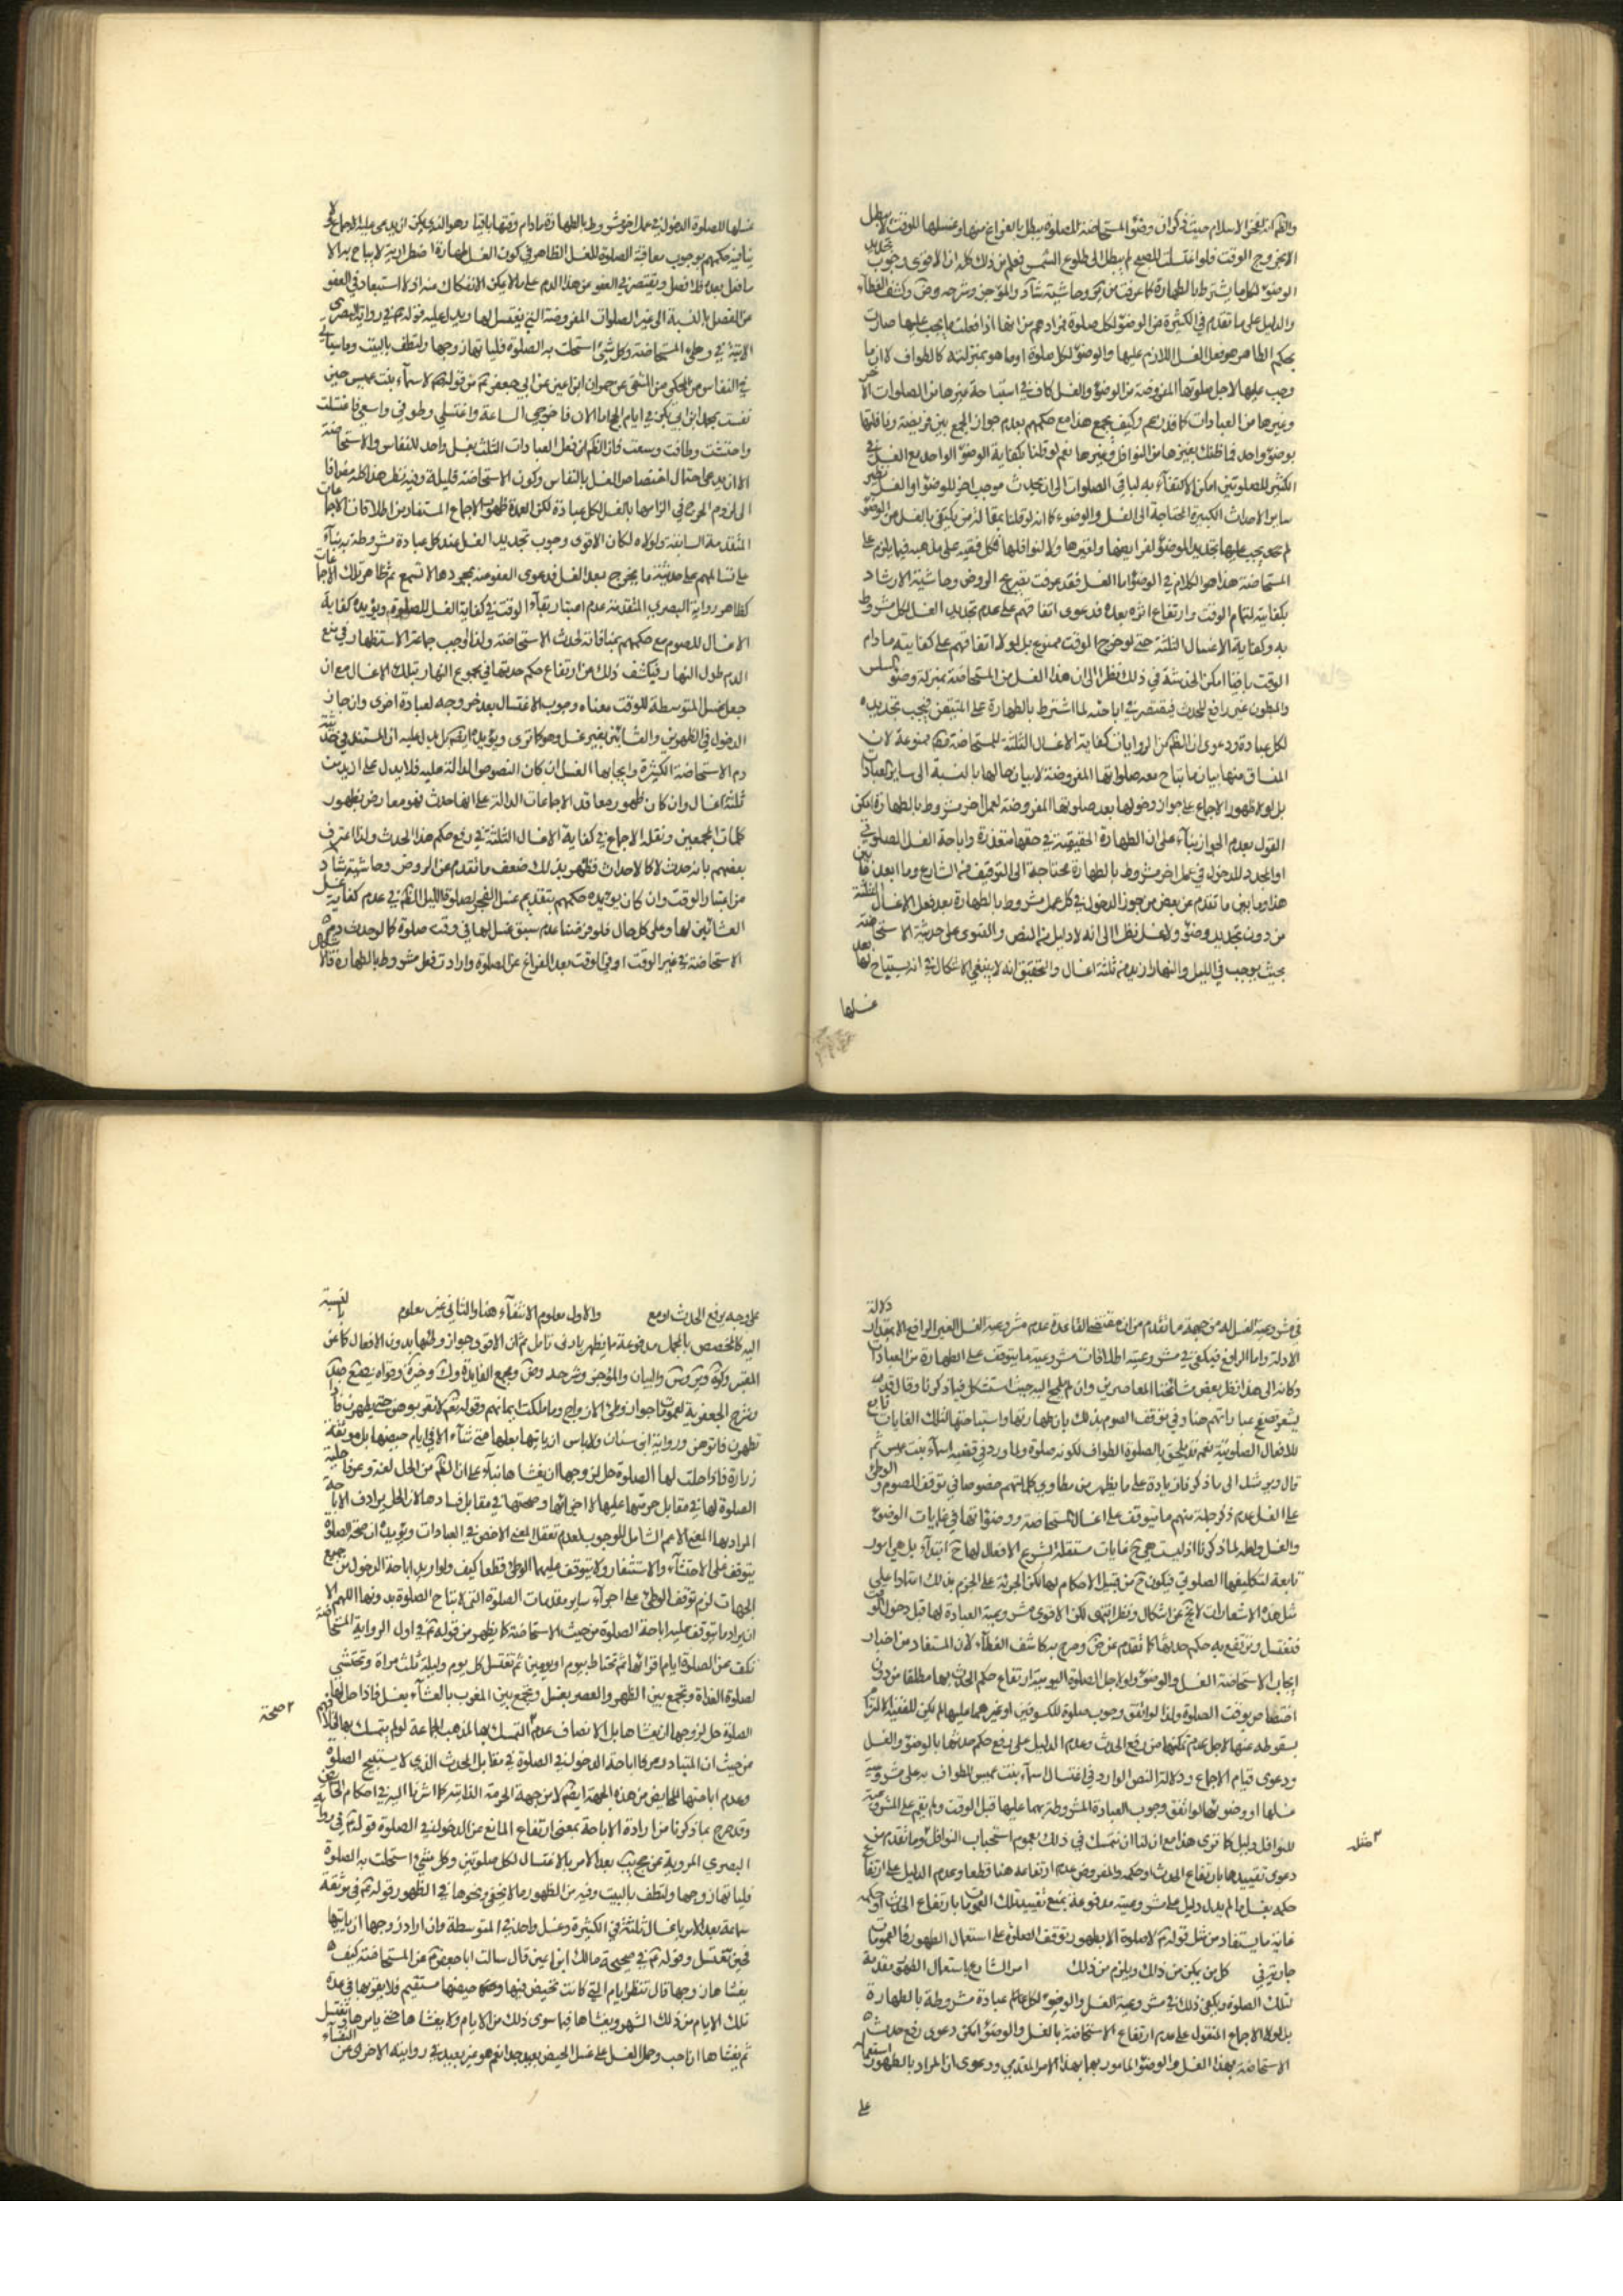 الا بخروج الوقت فلو اغتسلت للصبح لم يبطل الى طلوع الشمس فعلم من ذلك كله ان الاقوى وجوب تجديد
الوضوء لكل ما يشترط بالطهارة كما عرفت من
والدليل على ما تقدم في الكثيرة من الوضوء لكل صلوة مرادهم من انها اذا فعلت ما يجب عليها صارت
بحكم الطاهر هو فعل الغسل اللازم عليها والوضوء لكل صلوة او ما هو بمنزلته كالطواف لان ما
وجب عليها لاجل صلوتها المفروضة من الوضوء والغسل كاف في استباحة غيرها من الصلوات الاخر
وغيرها من العبادات كما قد يوهم وكيف يجمع هذا مع حكمهم بعدم جواز الجمع بين فريضة ونافلتها
بوضوء واحد فما ظنك بغيرها من النوافل وغيرها نعم لو قلنا بكفاية الوضوء الواحد مع الغسل في
الكثيرة للصلوتين امكن الاكتفاء به لباقي الصلوات الى ان يحدث موجب اخر للوضوء او الغسل نظير
ساير الاحداث الكبيرة المحتاجة الى الغسل والوضوء كما انه لو قلنا بمقالة من يكتفى بالغسل من الوضوء
لم يجب عليها تجديد الوضوء لفرايضها ولغيرها ولا لنوافلها فكل فقيه على مذهبه فيما يلزم على
المستحاضة هذا هو الكلام في الوضوء اما الغسل فقد عرفت تصريح الروض وحاشية الارشاد
بكفايته لتمام الوقت وارتفاع اثره بعده فدعوى اتفاقهم على عدم تجديد الغسل لكل مشروط
به وكفاية الاغسال الثلثة حتى لو خرج الوقت ممنوع بل لولا اتفاقهم على كفايته ما دام
الوقت باقيا امكن الخدشة في ذلك نظرا الى ان هذا الغسل من المستحاضة بمنزلة وضوء السلس
والمبطون غير رافع للحدث فيقتصر في اباحته لما اشترط بالطهارة على المتيقن فيجب تجديده
لكل عبادة ودعوى ان الظم من الروايات كفاية الاغسال الثلثة للمستحاضة فهى ممنوعة لان
المنساق منها بيان ما يتاح معه صلواتها المفروضة لا بيان حالها بالنسبة الى ساير العبادات
بل لولا ظهور الاجماع على جواز دخولها بعد صلوتها المفروضة لعمل اخر مشروط بالطهارة امكن
القول بعدم الجواز بناء على ان الطهارة الحقيقية في حقها متعذرة واباحة الغسل الصلوتي
او المجدد للدخول في عمل اخر مشروط بالطهارة محتاجة الى التوقيف من الشارع وما ابعد ما بين
هذا وما بين ما تقدم عن بعض من جوز الدخول في كل عمل مشروط بالطهارة بعد فعل الاغسال الثلثة
من دون تجديد وضوء ولا غسل نظرا الى انه لا دليل من النص والفتوى على حدثية الاستحاضة
بحيث يوجب في الليل والنهار ازيد من ثلثة اغسال والتحقيق انه لا ينبغي الاشكال في انه يستباح لها بعد
غسلها
غسلها للصلوة الدخول في عمل اخر مشروط بالطهارة ما دام وقتها باقيا وهو الذي يمكن ان يدعى عليه الاجماع ولا
ينافيه حكمهم بوجوب معاقبة الصلوة للغسل الظاهر في كون الغسل طهارة اضطرارية لا يباح به الا
ما فعل بعده بلا فصل ويقتصر في العفو عن هذا الدم على ما لا يمكن الانفكاك منه اذ لا استبعاد في العفو
عن الفصل بالنسبة الى غير الصلوات المفروضة التي يغتسل لها ويدل عليه قوله في رواية البصرى
الاتية في وطى المستحاضة وكل شئ استحلت به الصلوة فلياتها زوجها ولتطف بالبيت وما سياتي
في النفاس من المحكي من المنتقى عن حمران ابن اعين عن ابي جعفر من قوله لاسماء بنت عميس حين
نفست بمحمد ابن ابي بكر في ايام الحج اما الان فاخرجي الساعة واغتسلي وطوفي واسعي فاغتسلت
واحتشت وطافت وسعت فان الظم انه فعل العبادات الثلث بغسل واحد للنفاس والاستحاضة
الا ان يدعى احتمال اختصاص الغسل بالنفاس وكون الاستحاضة قليلة وفيه نظر هذا كله مضافا
الى لزوم الحرج في الزامها بالغسل لكل عبادة لكن العمدة ظهور الاجماع المستفاد من اطلاقات الاجماعات
المتقدمة السابقة ولولاه لكان الاقوى وجوب تجديد الغسل عند كل عبادة مشروطة به بناء
على تسالمهم على حدثية ما يخرج بعد الغسل فدعوى العفو عنه بمجردها لا تسمع ثم ظاهر تلك الاجماعات
كظاهر رواية البصري المتقدمة عدم اعتبار بقاء الوقت في كفاية الغسل للصلوة ويؤيده كفاية
الاغسال للصوم مع حكمهم بمنافاته لحدث الاستحاضة ولذا اوجب جماعة الاستظهار في منع
الدم طول النهار فيكشف ذلك عن ارتفاع حكم حدثها في مجموع النهار بتلك الاغسال مع ان
جعل غسل المتوسطة للوقت معناه وجوب الاغتسال بعد خروجه لعبادة اخرى وان جاز
الدخول في الظهرين والعشائين بغير غسل وهو كما ترى ويؤيده ايضا بل يدل عليه ان المستند في حدثية
دم الاستحاضة الكثيرة وايجابها الغسل ان كان النصوص الدالة عليه فلا يدل على ازيد من
ثلثة اغسال وان كان ظهور معاقد الاجماعات الدالة على انها حدث فهو معارض بظهور
كلمات المجمعين ونقلة الاجماع في كفاية الاغسال الثلثة في رفع حكم هذا الحدث ولذا اعترف
بعضهم بانه حدث لا كالاحداث فظهر بذلك ضعف ما تقدم عن الروض وحاشية شاد
من اعتبار الوقت وان كان يؤيده حكمهم بتقديم غسل الفجر لصلوة الليل الظم في عدم كفاية غسل
العشائين لها وعلى كل حال فلو فرضنا عدم سبق غسل لها في وقت صلوة كما لو حدث دم
الاستحاضة في غير الوقت او في الوقت بعد الفراغ عن الصلوة وارادت فعل مشروط بالطهارة فالاشكال
في مشروعية الغسل له من جهة ما تقدم من ان مقتضى القاعدة عدم مشروعية الغسل الغير الرافع الا بمقدار دلالة
الادلة واما الرافع فيكفي في مشروعيته اطلاقات مشروعية ما يتوقف على الطهارة من العبادات
وكانه الى هذا نظر بعض مشائخنا المعاصرين وان لم يلمح اليه حيث استشكل فيما ذكرنا وقال
يشعر تصفح عباراتهم هنا وفي توقف الصوم بذلك بان طهارتها واستباحتها لتلك الغايات تابع
للافعال الصلوتية نعم قد يلحق بالصلوة الطواف لكونه صلوة ولما ورد في قضية اسماء بنت عميس ثم
قال ويرشد الى ما ذكر فان زيادة على ما يظهر من مطاوي كلماتهم خصوصا في توقف الصوم والوطى
على الغسل عدم ذكر جملة منهم ما يتوقف على اغسال المستحاضة ووضوءاتها في غايات الوضوء
والغسل ولعله لما ذكرنا اذ ليست هي ح غايات مستقلة لشرع الافعال لها ح ابتداء بل هي امور
تابعة لتكليفها الصلوتي فيكون ح من قبيل الاحكام لها لكن الجرئة على الجزم بذلك استنادا على
مثل هذه الاشعارات لا يخ عن اشكال ونظر انتهى لكن الاقوى مشروعية العبادة لها قبل دخول الوقت
فتغتسل ويرتفع به حكم حدثها كما تقدم عن ض وصرح به كاشف الغطاء لان المستفاد من اخبار
ايجاب الاستحاضة الغسل والوضوء ولو لاجل الصلوة اليومية ارتفاع حكم الحدث بهما مطلقا من دون
اختصاص بوقت الصلوة ولذا لو اتفق وجوب صلوة للكسوفين او غيرهما عليها لم يكن للفقيه الالتزام
بسقوطه عنها لاجل عدم تمكنها من رفع الحدث وعدم الدليل على رفع حكم حدثها بالوضوء والغسل
ودعوى قيام الاجماع ودلالة النص الوارد في اغتسال اسماء بنت عميس للطواف به على مشروعية
غسلها او وضوئها لو اتفق وجوب العبادة المشروطة بهما عليها قبل الوقت ولم يقم على المشروعية
للنوافل دليل كما ترى هذا مع ان لنا ان نتمسك في ذلك بعموم استحباب النوافل وما تقدم من
دعوى تقييدها بارتفاع الحدث او حكمه والمفروض عدم ارتفاعه هنا قطعا وعدم الدليل على ارتفاع
حكمه بغسل ما لم يدل دليل على مشروعيته مدفوعة بمنع تقييد تلك العمومات بارتفاع الحدث او حكمه
غاية ما يستفاد من مثل قوله لا صلوة الا بطهور توقف الصلوة على استعمال الطهور فالعمومات
جارية في كل من يمكن من ذلك ويلزم من ذلك امر الشارع باستعمال الطهور مقدمة
لتلك الصلوة ويكفى ذلك في مشروعية الغسل والوضوء لكل عبادة مشروطة بالطهارة
بل لولا الاجماع المنقول على عدم ارتفاع الاستحاضة بالغسل والوضوء امكن دعوى رفع حدث
الاستحاضة بهذا الغسل والوضوء المامور بهما بهذا الامر المقدمي ودعوى ان المراد بالطهور استعماله
على
على وجه يرفع الحدث لو مع والاول معلوم الانتفاء هنا والثاني غير معلوم بالنسبة
اليه كالمخصص بالمجمل مدفوعة بما يظهر بادنى تامل ثم ان الاقوى جواز وطئها بدون الافعال كما عن
تطهرن فاتوهن ورواية ابن سنان ولا باس ان ياتيها بعلها متى شاء الا في ايام حيضها بل موثقة
زرارة فاذا حلت لها الصلوة حل لزوجها ان يغشاها بناء على ان الظم من الحل لغة وعرفا حلية
الصلوة لها في مقابل حرمتها عليها لا صحتها في مقابل فسادها لان الحل يرادف الاباحة
المراد بها المعنى الاعم الشامل للوجوب لعدم تعقل المعنى الاخص في العبادات ويؤيده ان صحة الصلوة
يتوقف على الاحتشاء والاستثفار ولا يتوقف عليهما الوطى قطعا كيف ولو اريد اباحة الدخول من جميع
الجهات لزم توقف الوطى على اجراء ساير مقدمات الصلوة التي لا تباح الصلوة بدونها اللهم الا
ان يراد ما يتوقف عليه اباحة الصلوة من حيث الاستحاضة كما يظهر من قوله في اول الرواية المستحاضة
تكف عن الصلوة ايام اقرائها ثم تحتاط بيوم او يومين ثم تغتسل كل يوم وليلة ثلث مرات وتحتشي
لصلوة الغداة وتجمع بين الظهر والعصر بغسل وتجمع بين المغرب والعشاء بغسل فاذا حل لها
الصلوة حل لزوجها ان يغشاها بل الانصاف عدم التمسك بها لمذهب الجماعة لو لم يتمسك بها لخلافهم
من حيث ان المتبادر اباحة الدخول في الصلوة في مقابل الحدث الذي لا يستبيح الصلوة
وعدم اباحتها للحايض من هذه الجهة ايضا لا من جهة الحرمة الذاتية كما اشرنا اليه في احكام الحايض
وقد صرح بما ذكرنا من ارادة الاباحة بمعنى ارتفاع المانع عن الدخول في الصلوة قوله في رواية
البصري المروية عن حج بعد الامر بالاغتسال لكل صلوتين وكل شئ استحلت به الصلوة
فلياتها زوجها ولتطف بالبيت وفيه من الظهور ما لا يخفى ونحوها في الظهور قوله في موثقة
سماعة بعد الامر باغسال ثلثة في الكثيرة وغسل واحد في المتوسطة وان اراد زوجها ان ياتيها
فحين تغتسل وقوله في صحيحة مالك ابن اعين قال سالت ابا جعفر عن المستحاضة كيف
يغشاها زوجها قال تنظر الايام التي كانت تحيض فيها وحيضها مستقيم فلا يقربها في عدة
تلك الايام من ذلك الشهر ويغشاها فيما سوى ذلك من الايام ولا يغشاها حتى يامرها فتغتسل
ثم يغشاها ان احب وحمل الغسل على غسل الحيض بعيد جدا نعم هو غير بعيد في روايته الاخرى عن النفساء
صحة